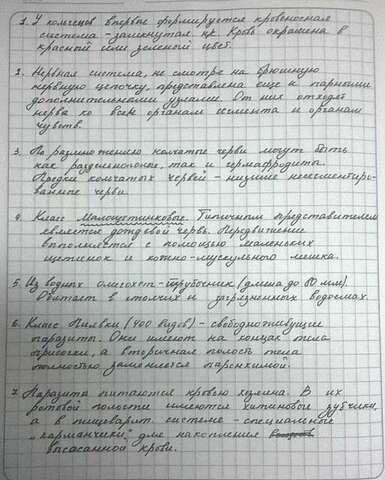 1. У кольчецов впервые формируется кровеносная
система - замкнутая цк. Кровь окрашена в
красный или зеленый цвет.
2. Нервная система, не смотре на брюшную
нервную цепочку, представлена еще и парными
дополнительными узлами. От них отходят
нерва ко всем органам сегмента и органам
чувств.
3. По размножению кольчатые черви могут быть
как раздельнополые, так и гермафродиты.
Предки кольчатых червей - низшие несегментиро-
ванные черви.
4. Класс Малощетинковые. Типичным представителем
является дождевой червь. Передвижение
выполняется с помощью маленьких
щетинок и кожно-мускульного мешка.
5. Из водных олигохет - трубочник (длина до 80 мм).
Обитает в стоячих и загрязненных водоемах.
6. Класс Пиявки (400 видов) - свободноживущие
паразиты. Они имеют на концах тела
присоски, а вторичная полость тела
полностью заменяется паренхимой.
7. Паразиты питаются кровью хозяина. В их
ротовой полости имеются хитиновые зубчики,
а в пищеварит. системе - специальные
"карманчики" для накопления
всасанной крови.